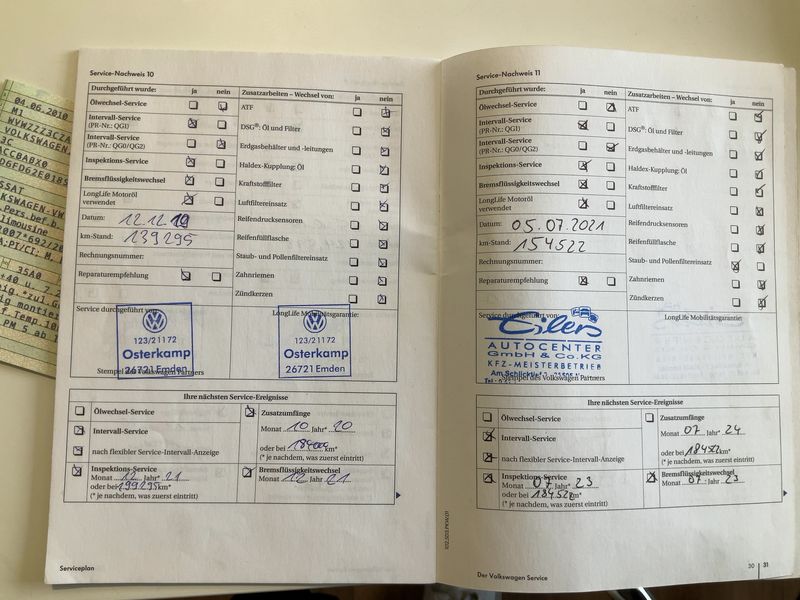 04.06.2010
M1
VOLKSWAGEN
3C
Service-Nachweis 10
Durchgeführt wurde: ja nein
Zusatzarbeiten – Wechsel von: ja nein
Ölwechsel-Service
ATF
Intervall-Service
(PR-Nr.: QG1)
DSG®: Öl und Filter
Intervall-Service
(PR-Nr.: QG0/QG2)
Erdgasbehälter und -leitungen
Inspektions-Service
Haldex-Kupplung: Öl
Bremsflüssigkeitswechsel
Kraftstofffilter
LongLife Motoröl
verwendet
Luftfiltereinsatz
Datum: 12.12.19
Reifendrucksensoren
km-Stand: 139295
Reifenfüllflasche
Rechnungsnummer:
Staub- und Pollenfiltereinsatz
Reparaturempfehlung
Zahnriemen
Zündkerzen
Service durchgeführt von:
LongLife Mobilitätsgarantie:
123/21172
Osterkamp
26721 Emden
123/21172
Osterkamp
26721 Emden
Stempel des Volkswagen Partners
Ihre nächsten Service-Ereignisse
Ölwechsel-Service
Zusatzumfänge
Monat 10 Jahr* 20
Intervall-Service
oder bei km*
nach flexibler Service-Intervall-Anzeige
(* je nachdem, was zuerst eintritt)
Inspektions-Service
Monat 12 Jahr* 21
oder bei 199295 km*
(* je nachdem, was zuerst eintritt)
Bremsflüssigkeitswechsel
Monat 12 Jahr 21
Serviceplan
Service-Nachweis 11
Durchgeführt wurde: ja nein
Zusatzarbeiten – Wechsel von: ja nein
Ölwechsel-Service
ATF
Intervall-Service
(PR-Nr.: QG1)
DSG®: Öl und Filter
Intervall-Service
(PR-Nr.: QG0/QG2)
Erdgasbehälter und -leitungen
Inspektions-Service
Haldex-Kupplung: Öl
Bremsflüssigkeitswechsel
Kraftstofffilter
LongLife Motoröl
verwendet
Luftfiltereinsatz
Datum: 05.07.2021
Reifendrucksensoren
km-Stand: 154522
Reifenfüllflasche
Rechnungsnummer:
Staub- und Pollenfiltereinsatz
Reparaturempfehlung
Zahnriemen
Zündkerzen
Service durchgeführt von:
LongLife Mobilitätsgarantie:
Eilers
AUTOCENTER
GmbH & Co.KG
KFZ-MEISTERBETRIEB
Stempel des Volkswagen Partners
Ihre nächsten Service-Ereignisse
Ölwechsel-Service
Zusatzumfänge
Monat 07 Jahr* 24
Intervall-Service
oder bei km*
nach flexibler Service-Intervall-Anzeige
(* je nachdem, was zuerst eintritt)
Inspektions-Service
Monat 07 Jahr* 23
oder bei km*
(* je nachdem, was zuerst eintritt)
Bremsflüssigkeitswechsel
Monat 07 Jahr 23
Der Volkswagen Service
30 | 31